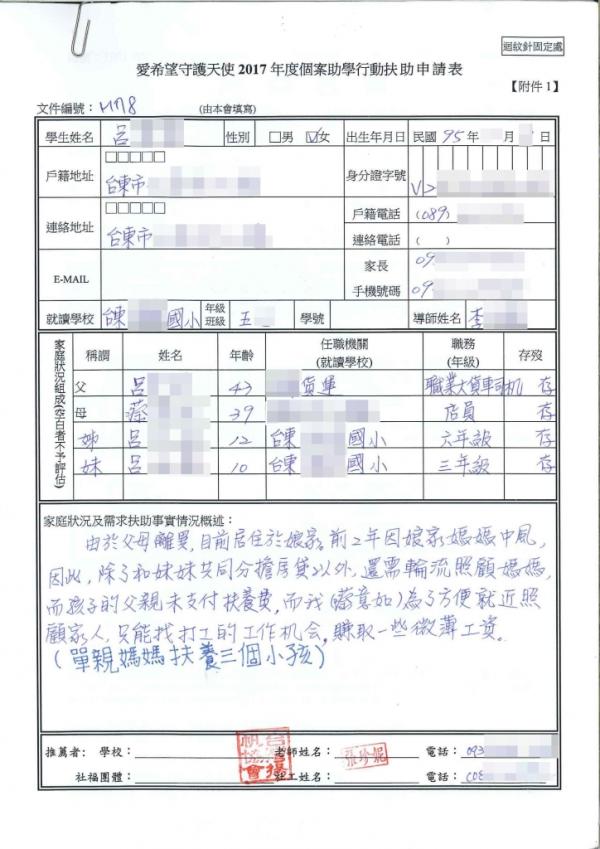 迴紋針固定處
愛希望守護天使 2017 年度個案助學行動扶助申請表
【附件 1】
文件編號：H178 (由本會填寫)
學生姓名 呂 性別 □男 ☑女 出生年月日 民國 95 年 月 日
戶籍地址 □□□□□ 台東市 身分證字號 V2
連絡地址 □□□□□ 台東市 戶籍電話 (089)
連絡電話 ( )
E-MAIL 家長 手機號碼 09
09
就讀學校 台東 國小 年級班級 五 學號 導師姓名 李
家庭狀況組成(空白者不予評估)
稱謂 姓名 年齡 任職機關 (就讀學校) 職務 (年級) 存歿
父 呂 43 貨運 職業大貨車司机 存
母 39 店員 存
姊 呂 12 台東 國小 六年級 存
妹 呂 10 台東 國小 三年級 存
家庭狀況及需求扶助事實情況概述：
由於父母離異,目前居住於娘家,前2年因娘家媽媽中風,
因此,除了和妹妹共同分擔房貸以外,還需輪流照顧媽媽,
而孩子的父親未支付扶養費,而我(蔡意如)為了方便就近照
顧家人,只能找打工的工作机会,賺取一些微薄工資。
(單親媽媽扶養三個小孩)
推薦者：學校： 老師姓名： 張珍妮 電話：093
社福團體： 社工姓名： 電話：